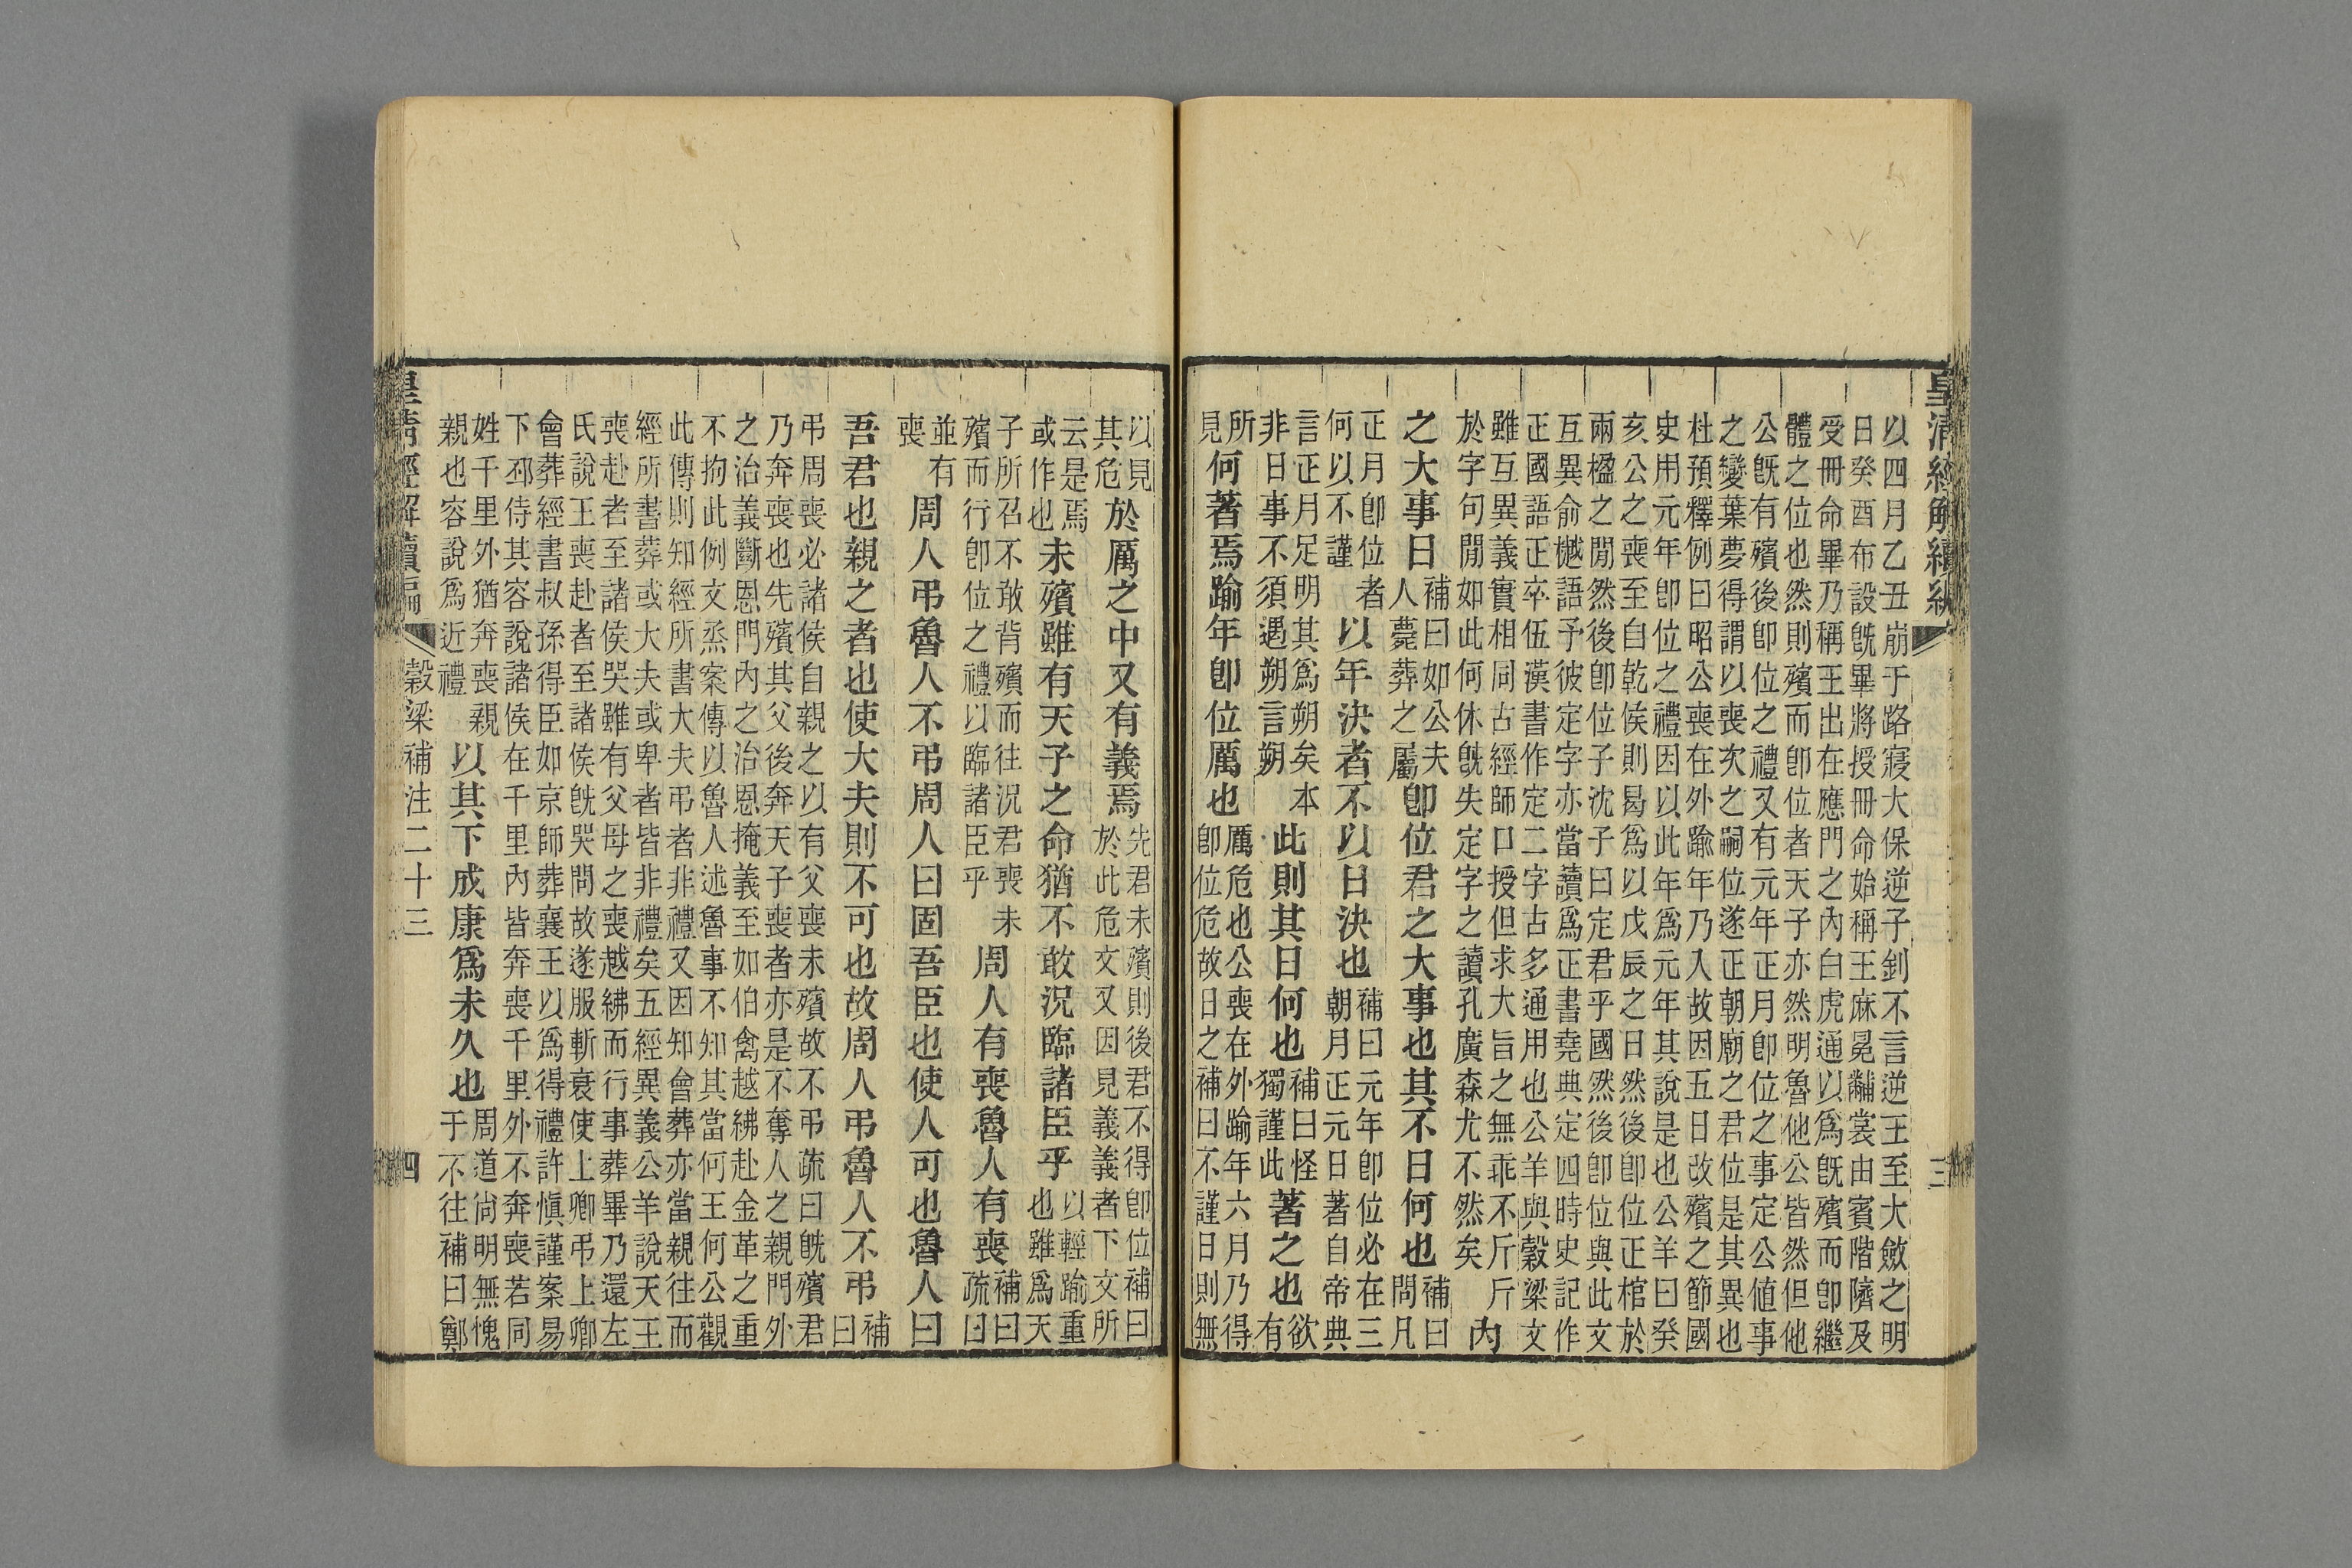 皇清經解續編
三
以四月乙丑崩于路寢大保逆子釗不言逆王至大斂之明
日癸酉布設旣畢將授冊命始稱王麻冕黼裳由賓階隮及
受冊命畢乃稱王出在應門之內白虎通以爲旣殯而卽繼
體之位也然則殯而卽位者天子亦然明魯他公皆然但他
公旣有殯後卽位之禮又有元年正月卽位之事定公値事
之變葉夢得謂以喪次之嗣位遂正朝廟之君位是其異也
杜預釋例曰昭公喪在外踰年乃入故因五日改殯之節國
史用元年卽位之禮因以此年爲元年其說是也公羊曰癸
亥公之喪至自乾侯則曷爲以戊辰之日然後卽位正棺於
兩楹之閒然後卽位子沈子曰定君乎國然後卽位與此文
互異俞樾語予彼定字亦當讀爲正書堯典定四時史記作
正國語正卒伍漢書作定二字古多通用也公羊與穀梁文
雖互異義實相同古經師口授但求大旨之無乖不斤斤
於字句閒如此何休旣失定字之讀孔廣森尤不然矣
內
之大事日
補曰如公夫
人薨葬之屬
卽位君之大事也其不日何也
補曰
問凡
正月卽位者
何以不謹
以年決者不以日決也
補曰元年卽位必在三
朝月正元日著自帝典
言正月足明其爲朔矣本
非日事不須遇朔言朔
此則其日何也
補曰怪
獨謹此
著之也
欲
有
所
見
何著焉踰年卽位厲也
厲危也公喪在外踰年六月乃得
卽位危故日之補曰不謹日則無
以見
其危
於厲之中又有義焉
先君未殯則後君不得卽位補曰
於此危文又因見義義者下文所
云是焉
或作也
未殯雖有天子之命猶不敢況臨諸臣乎
以輕踰重
也雖爲天
子所召不敢背殯而往況君喪未
殯而行卽位之禮以臨諸臣乎
周人有喪魯人有喪
補曰
疏曰
並有
喪
周人弔魯人不弔周人曰固吾臣也使人可也魯人曰
吾君也親之者也使大夫則不可也故周人弔魯人不弔
補
曰
弔周喪必諸侯自親之以有父喪未殯故不弔疏曰旣殯君
乃奔喪也先殯其父後奔天子喪者亦是不奪人之親門外
之治義斷恩門內之治恩掩義至如伯禽越紼赴金革之重
不拘此例文烝案傳以魯人述魯事不知其當何王何公觀
此傳則知經所書大夫弔者非禮又因知會葬亦當親往而
經所書葬或大夫或卑者皆非禮矣五經異義公羊說天王
喪赴者至諸侯哭雖有父母之喪越紼而行事葬畢乃還左
氏說王喪赴者至諸侯旣哭問故遂服斬衰使上卿弔上卿
會葬經書叔孫得臣如京師葬襄王以爲得禮許愼謹案易
下邳侍其容說諸侯在千里內皆奔喪千里外不奔喪若同
姓千里外猶奔喪親
親也容說爲近禮
以其下成康爲未久也
周道尙明無愧
于不往補曰鄭
皇清經解續編
穀梁補注二十三
四